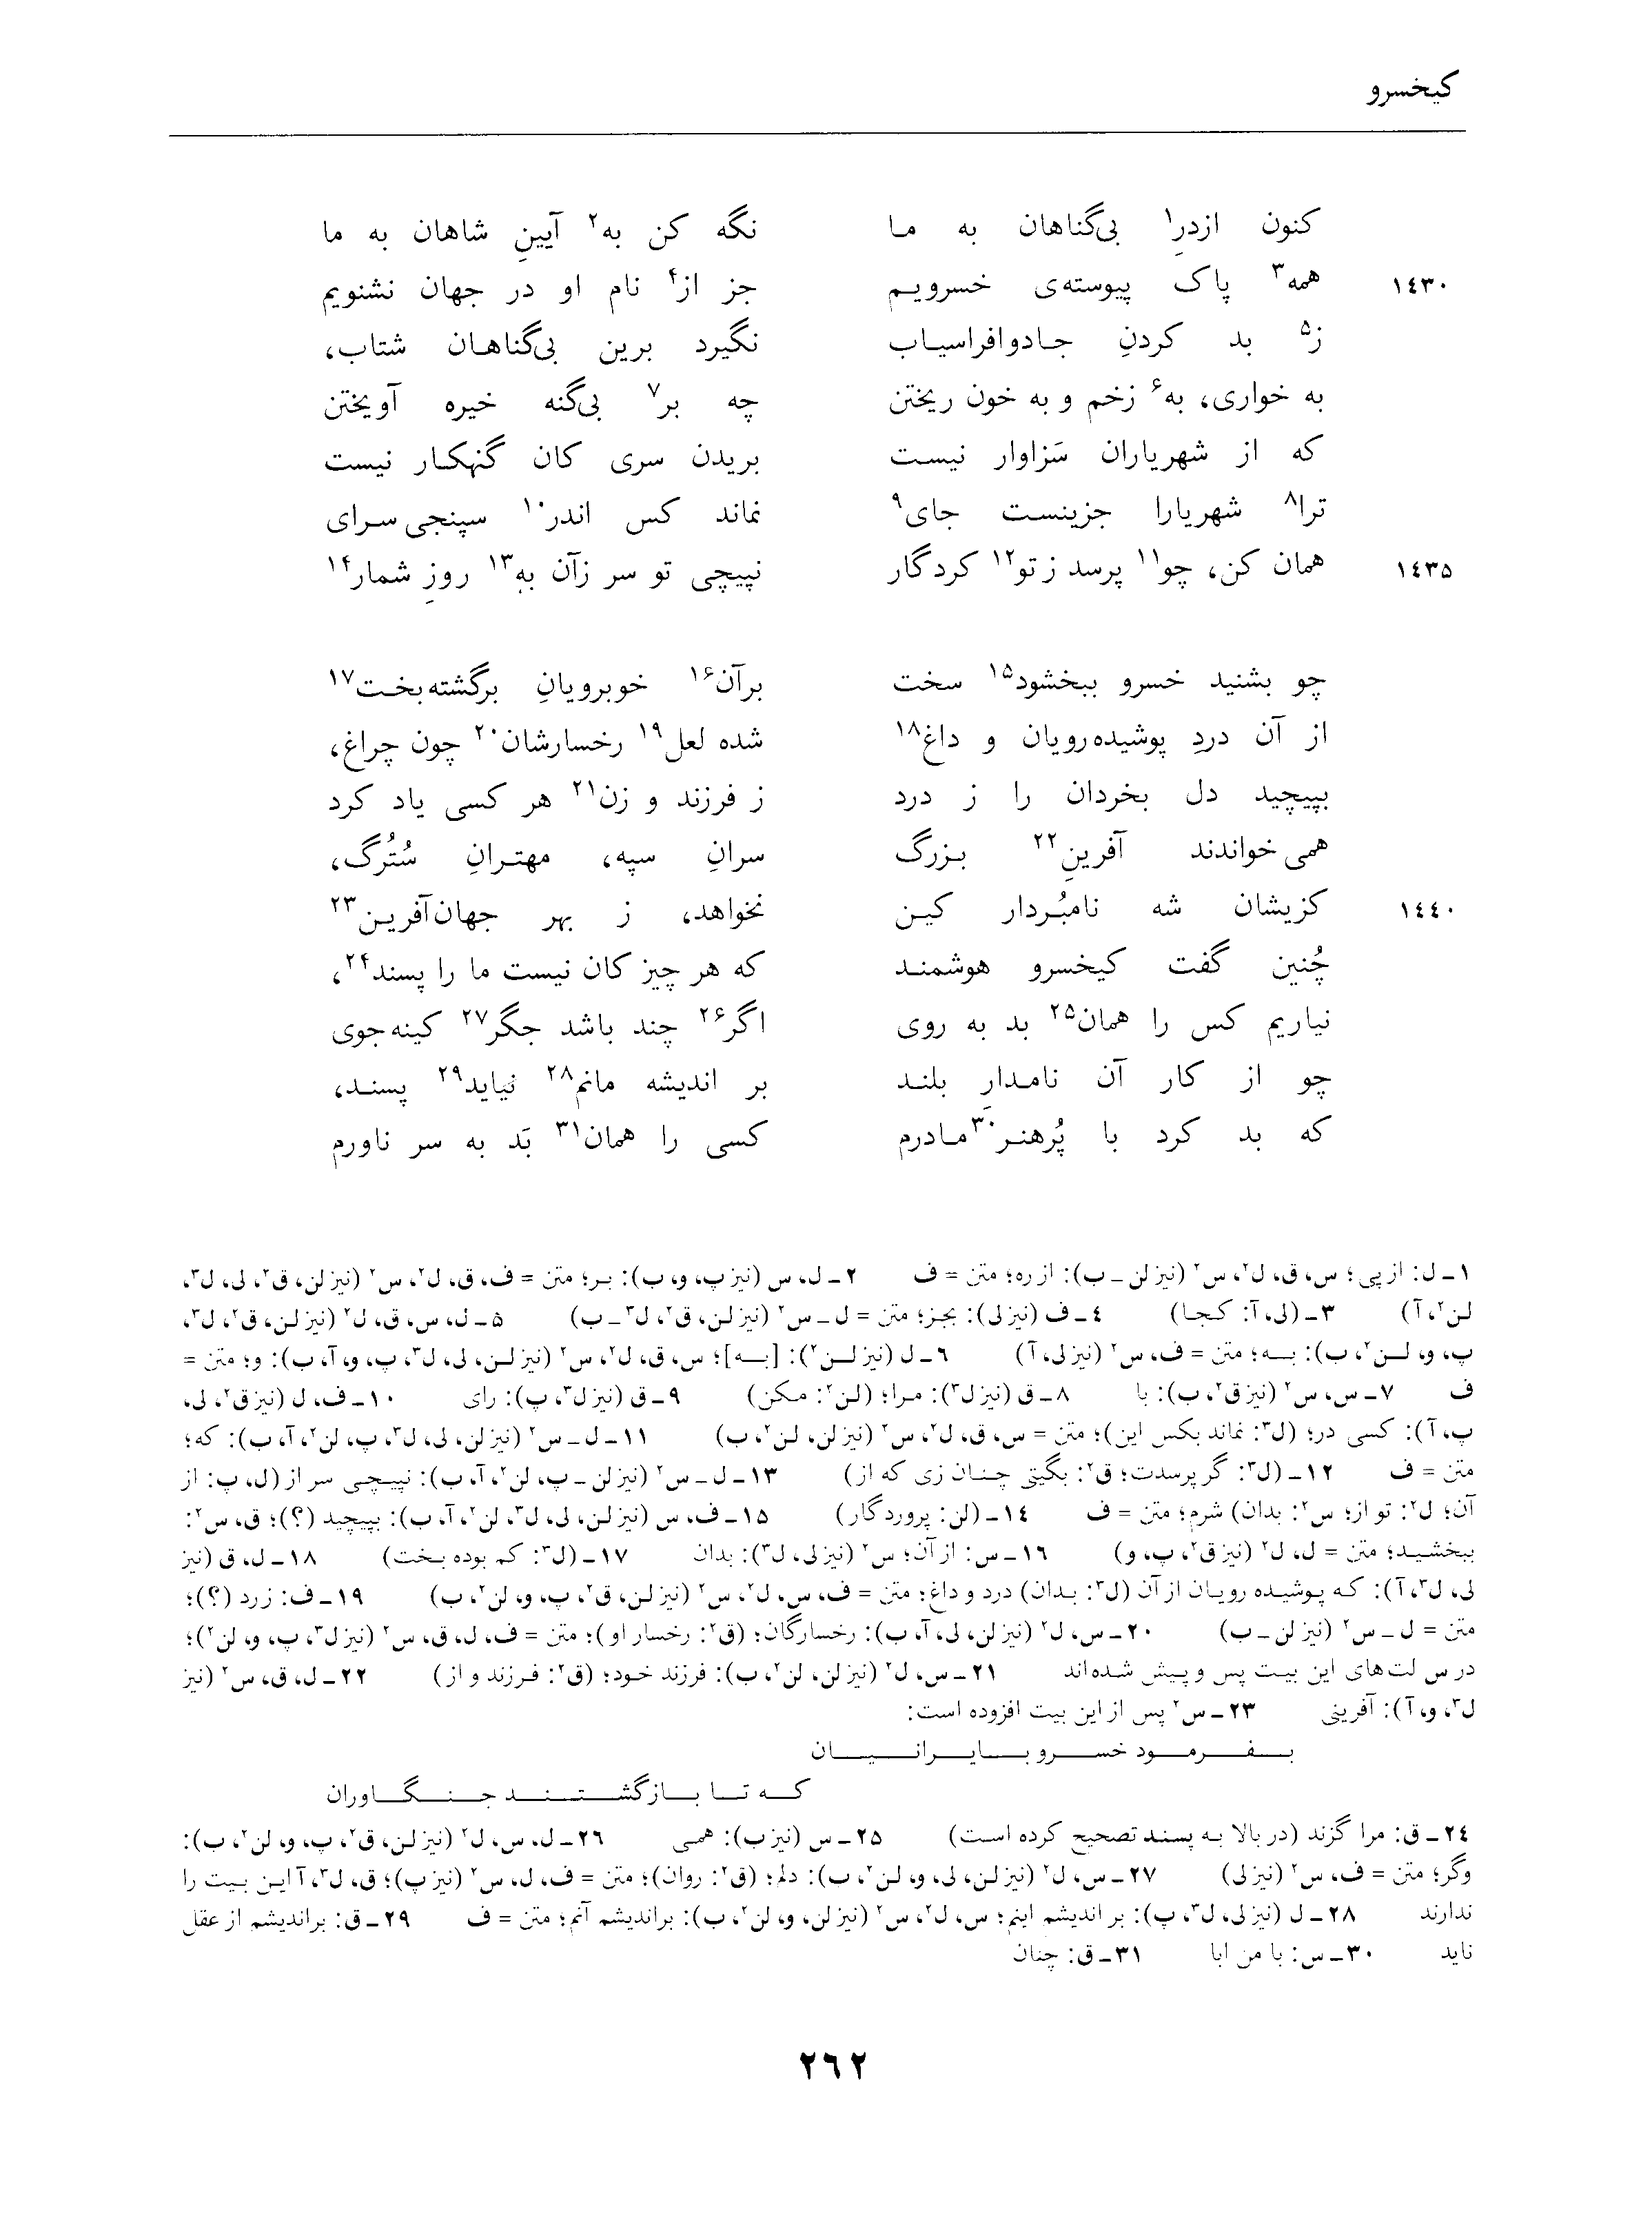 کیخسرو
کنون ازدرِ۱ بی‌گناهان به ما نگه کن به۲ آیینِ شاهان به ما
۱٤۳۰ همه۳ پاک پیوسته‌ی خسرویم جز از۴ نام او در جهان نشنویم
ز۵ بد کردنِ جادوافراسیاب نگیرد برین بی‌گناهان شتاب،
به خواری، به۶ زخم و به خون ریختن چه بر۷ بی‌گنه خیره آویختن
که از شهریاران سَزاوار نیست بریدن سری کان گنهکار نیست
ترا۸ شهریارا جزینست جای۹ نماند کس اندر۱۰ سپنجی‌سرای
۱٤۳۵ همان کن، چو۱۱ پرسد ز تو۱۲ کردگار نپیچی تو سر زآن به۱۳ روزِ شمار۱۴
چو بشنید خسرو ببخشود۱۵ سخت برآن۱۶ خوبرویانِ برگشته‌بخت۱۷
از آن دردِ پوشیده‌رویان و داغ۱۸ شده لعل۱۹ رخسارشان۲۰ چون چراغ،
بپیچید دل بخردان را ز درد ز فرزند و زن۲۱ هر کسی یاد کرد
همی‌خواندند آفرینِ۲۲ بزرگ سرانِ سپه، مهترانِ سُتُرگ،
۱٤٤۰ کزیشان شه نامبُردار کین نخواهد، ز بهر جهان‌آفرین۲۳
چُنین گفت کیخسرو هوشمند که هر چیز کان نیست ما را پسند۲۴،
نیاریم کس را همان۲۵ بد به روی اگر۲۶ چند باشد جگر۲۷ کینه‌جوی
چو از کار آن نامدارِ بلند بر اندیشه مانم۲۸ نیاید۲۹ پسند،
که بد کرد با پُرهنر۳۰ مادرم کسی را همان۳۱ بَد به سر ناورم
۱ـ ل: ازپی؛ س، ق، ل۲، س۲ (نیز لن ـ ب): از ره؛ متن = ف ۲ـ ل، س (نیز پ، و، ب): بر؛ متن = ف، ق، ل۲، س۲ (نیز لن، ق۲، لی، ل۳،
لن۲، آ) ۳ـ (لی، آ: کجا) ٤ـ ف (نیز لی): بجز؛ متن = ل ـ س۲ (نیز لن، ق۲، ل۳ ـ ب) ۵ـ ل، س، ق، ل۲ (نیز لن، ق۲، ل۳،
پ، و، لن۲، ب): به؛ متن = ف، س۲ (نیز لی، آ) ٦ـ ل (نیز لن۲): [به]؛ س، ق، ل۲، س۲ (نیز لن، لی، ل۳، پ، و، آ، ب): و؛ متن =
ف ۷ـ س، س۲ (نیز ق۲، ب): با ۸ـ ق (نیز ل۳): مرا؛ (لن۲: مکن) ۹ـ ق (نیز ل۳، پ): رای ۱۰ـ ف، ل (نیز ق۲، لی،
پ، آ): کسی در؛ (ل۳: نماند بکس این)؛ متن = س، ق، ل۲، س۲ (نیز لن، لن۲، ب) ۱۱ـ ل ـ س۲ (نیز لن، لی، ل۳، پ، لن۲، آ، ب): که؛
متن = ف ۱۲ـ (ل۳: گر پرسدت؛ ق۲: بگیتی چنان زی که از) ۱۳ـ ل ـ س۲ (نیز لن ـ پ، لن۲، آ، ب): نپیچی سر از (ل، پ: از
آن؛ ل۲: تو از؛ س۲: بدان) شرم؛ متن = ف ۱٤ـ (لن: پروردگار) ۱۵ـ ف، س (نیز لن، لی، ل۳، لن۲، آ، ب): بپیچید (؟)؛ ق، س۲:
ببخشید؛ متن = ل، ل۲ (نیز ق۲، پ، و) ۱٦ـ س: از آن؛ س۲ (نیز لی، ل۳): بدان ۱۷ـ (ل۳: کم بوده بخت) ۱۸ـ ل، ق (نیز
لی، ل۳، آ): که پوشیده رویان از آن (ل۳: بدان) درد و داغ؛ متن = ف، س، ل۲، س۲ (نیز لن، ق۲، پ، و، لن۲، ب) ۱۹ـ ف: زرد (؟)؛
متن = ل ـ س۲ (نیز لن ـ ب) ۲۰ـ س، ل۲ (نیز لن، لی، آ، ب): رخسارگان؛ (ق۲: رخسار او)؛ متن = ف، ل، ق، س۲ (نیز ل۳، پ، و، لن۲)؛
در س لت‌های این بیت پس و پیش شده‌اند ۲۱ـ س، ل۲ (نیز لن، لن۲، ب): فرزند خود؛ (ق۲: فرزند و از) ۲۲ـ ل، ق، س۲ (نیز
ل۳، و، آ): آفرینی ۲۳ـ س۲ پس از این بیت افزوده است:
بفرمود خسرو بایرانیان
که تا بازگشتند جنگاوران
۲٤ـ ق: مرا گزند (در بالا به پسند تصحیح کرده است) ۲۵ـ س (نیز ب): همی ۲٦ـ ل، س، ل۲ (نیز لن، ق۲، پ، و، لن۲، ب):
وگر؛ متن = ف، س۲ (نیز لی) ۲۷ـ س، ل۲ (نیز لن، لی، و، لن۲، ب): دلم؛ (ق۲: روان)؛ متن = ف، ل، س۲ (نیز پ)؛ ق، ل۳، آ این بیت را
ندارند ۲۸ـ ل (نیز لی، ل۳، پ): بر اندیشم اینم؛ س، ل۲، س۲ (نیز لن، و، لن۲، ب): براندیشم آنم؛ متن = ف ۲۹ـ ق: براندیشم از عقل
ناید ۳۰ـ س: با من ابا ۳۱ـ ق: چنان
۲٦۲